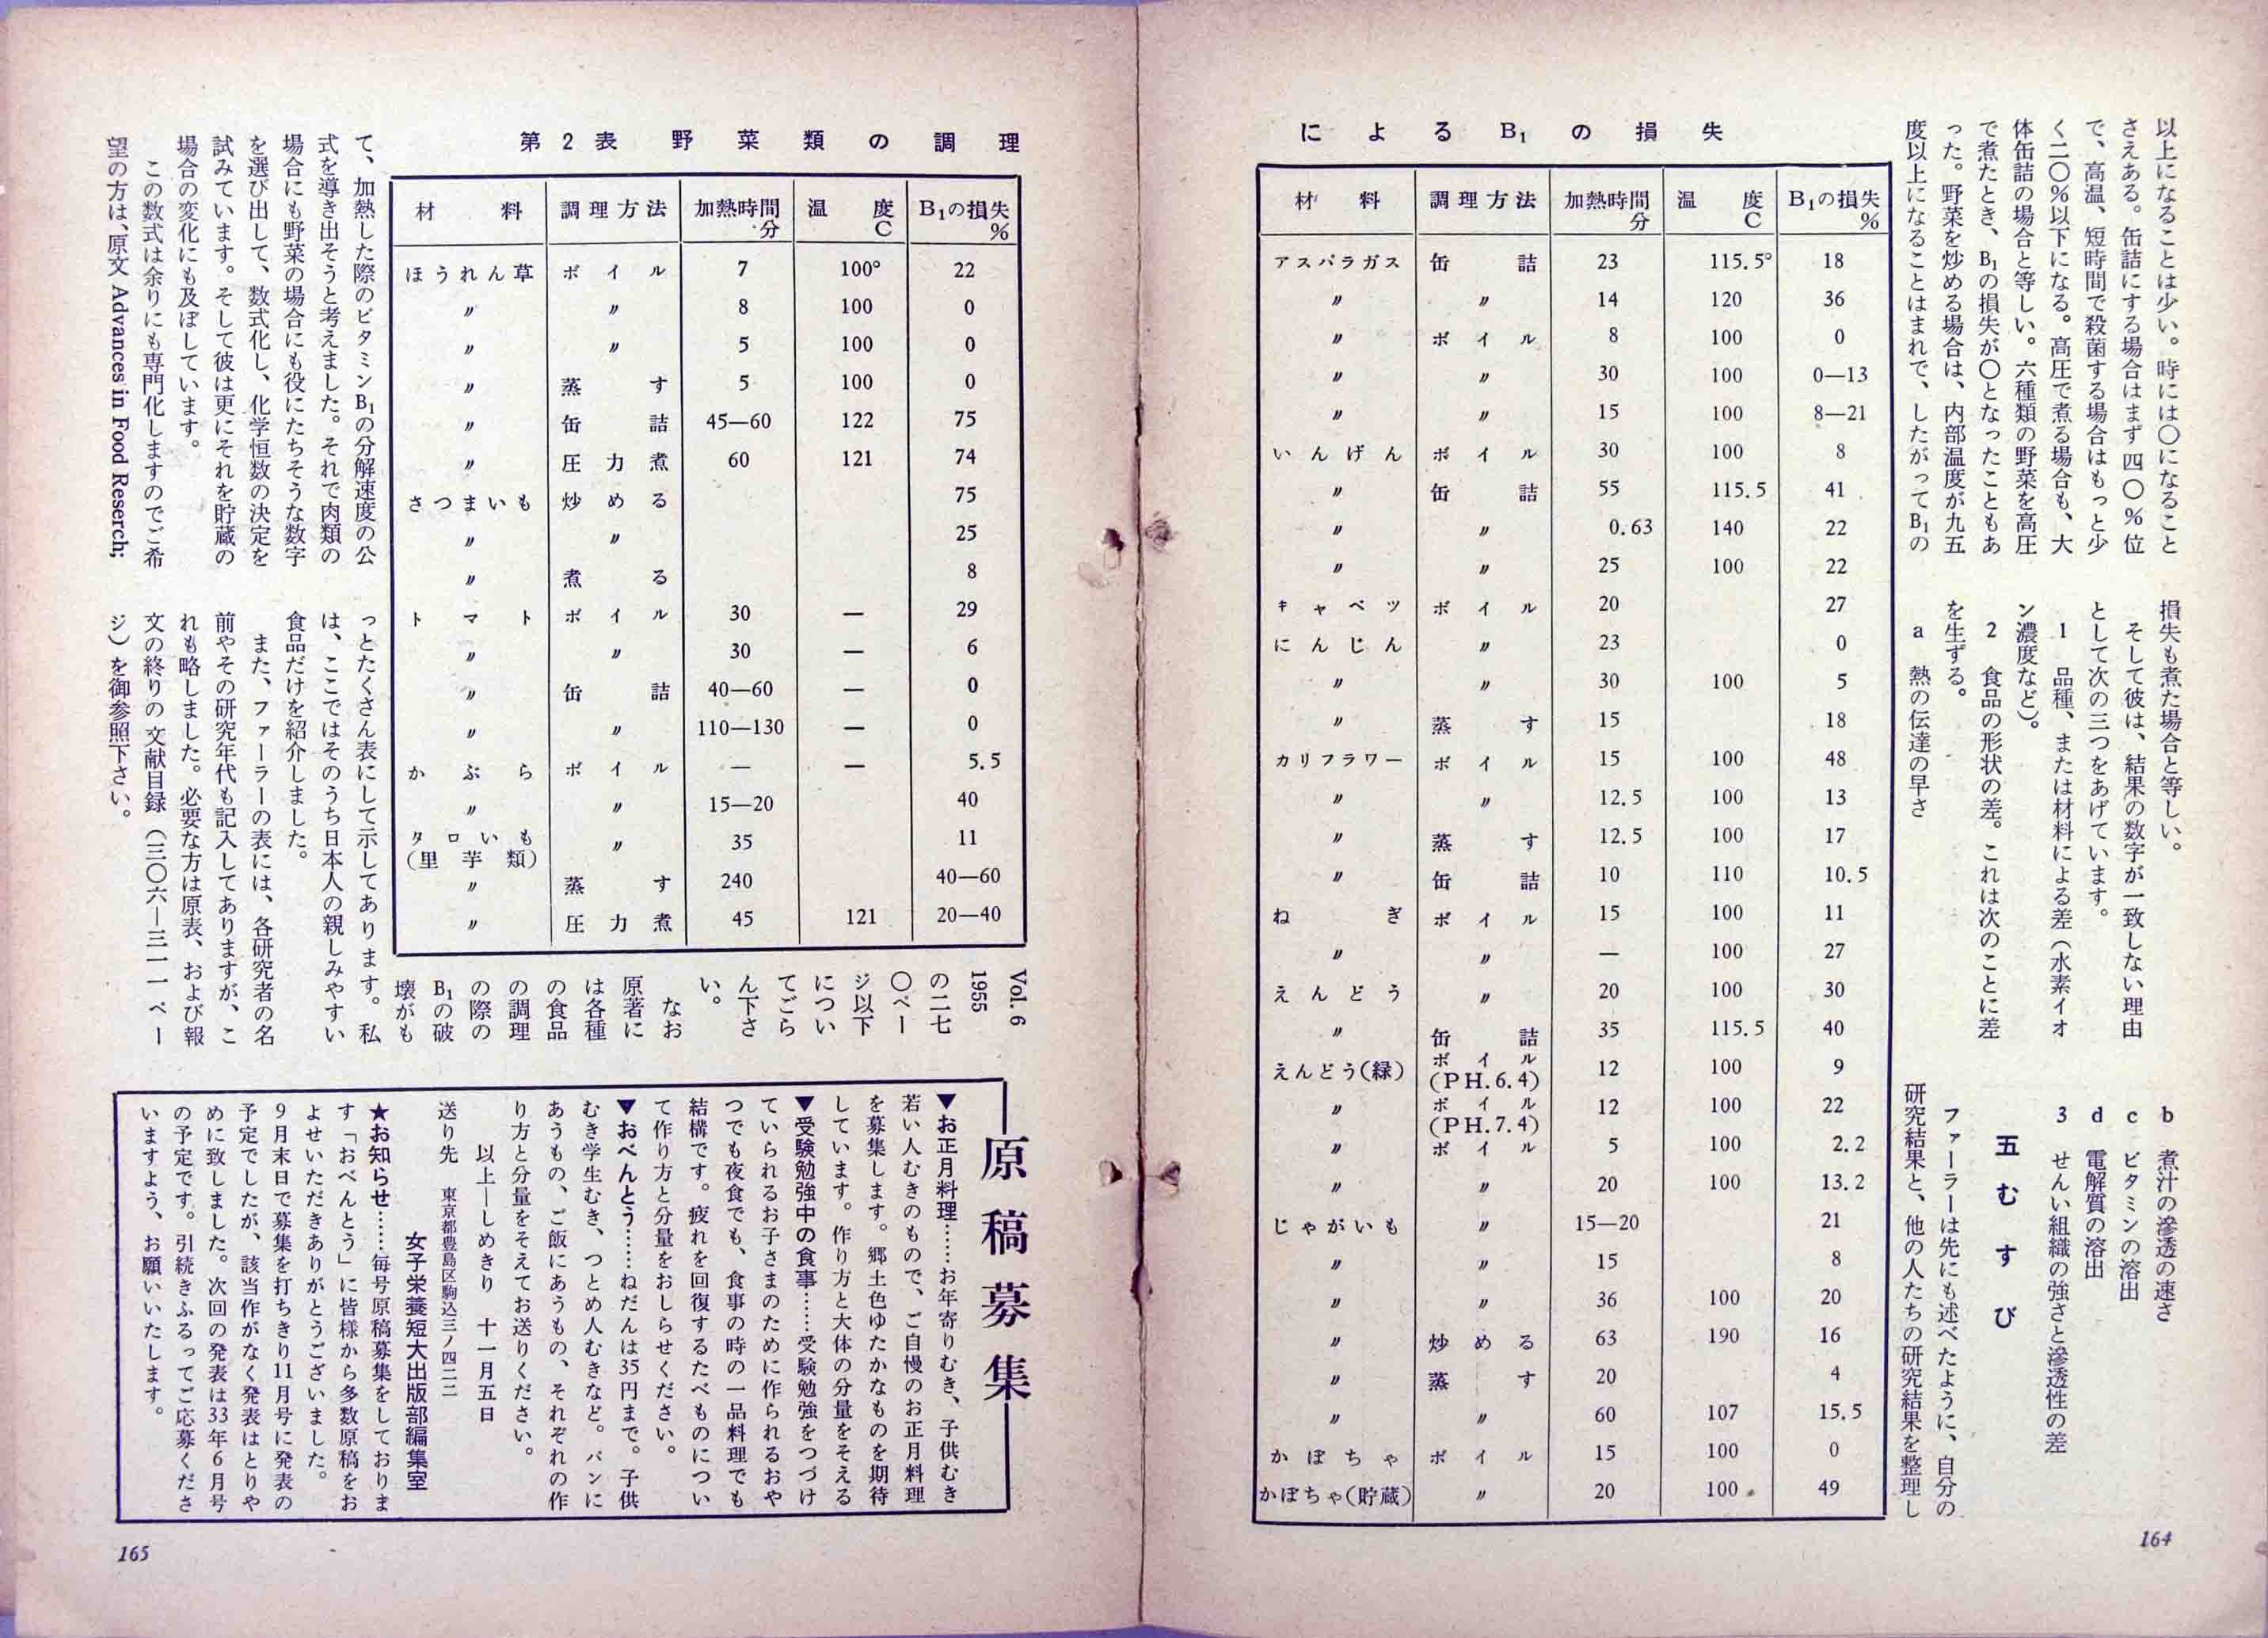 以上になることは少い。時には〇になること
さえある。缶詰にする場合はまず四〇％位
で、高温、短時間で殺菌する場合はもっと少
く二〇％以下になる。高圧で煮る場合も、大
体缶詰の場合と等しい。六種類の野菜を高圧
で煮たとき、B₁の損失が〇となったこともあ
った。野菜を炒める場合は、内部温度が九五
度以上になることはまれで、したがってB₁の
損失も煮た場合と等しい。
そして彼は、結果の数字が一致しない理由
として次の三つをあげています。
1 品種、または材料による差（水素イオ
ン濃度など）。
2 食品の形状の差。これは次のことに差
を生ずる。
a 熱の伝達の早さ
b 煮汁の滲透の速さ
c ビタミンの溶出
d 電解質の溶出
3 せんい組織の強さと滲透性の差
五 むすび
ファーラーは先にも述べたように、自分の
研究結果と、他の人たちの研究結果を整理し
によるB₁の損失
材料 調理方法 加熱時間 分 温度 C B₁の損失 %
アスパラガス 缶詰 23 115.5° 18
〃 〃 14 120 36
〃 ボイル 8 100 0
〃 〃 30 100 0—13
〃 〃 15 100 8—21
いんげん ボイル 30 100 8
〃 缶詰 55 115.5 41
〃 〃 0.63 140 22
〃 〃 25 100 22
キャベツ ボイル 20 27
にんじん 〃 23 0
〃 〃 30 100 5
〃 蒸す 15 18
カリフラワー ボイル 15 100 48
〃 〃 12.5 100 13
〃 蒸す 12.5 100 17
〃 缶詰 10 110 10.5
ねぎ ボイル 15 100 11
〃 〃 — 100 27
えんどう 〃 20 100 30
〃 缶詰 35 115.5 40
えんどう(緑) ボイル (PH.6.4) 12 100 9
〃 ボイル (PH.7.4) 12 100 22
〃 ボイル 5 100 2.2
〃 〃 20 100 13.2
じゃがいも 〃 15—20 21
〃 〃 15 8
〃 〃 36 100 20
〃 炒める 63 190 16
〃 蒸す 20 4
〃 〃 60 107 15.5
かぼちゃ ボイル 15 100 0
かぼちゃ(貯蔵) 〃 20 100 49
164
第2表 野菜類の調理
材料 調理方法 加熱時間 分 温度 C B₁の損失 %
ほうれん草 ボイル 7 100° 22
〃 〃 8 100 0
〃 〃 5 100 0
〃 蒸す 5 100 0
〃 缶詰 45—60 122 75
〃 圧力煮 60 121 74
さつまいも 炒める 75
〃 〃 25
〃 煮る 8
トマト ボイル 30 — 29
〃 〃 30 — 6
〃 缶詰 40—60 — 0
〃 〃 110—130 — 0
かぶら ボイル — — 5.5
〃 〃 15—20 40
タロいも (里芋類) 〃 35 11
〃 蒸す 240 40—60
〃 圧力煮 45 121 20—40
て、加熱した際のビタミンB₁の分解速度の公
式を導き出そうと考えました。それで肉類の
場合にも野菜の場合にも役にたちそうな数字
を選び出して、数式化し、化学恒数の決定を
試みています。そして彼は更にそれを貯蔵の
場合の変化にも及ぼしています。
この数式は余りにも専門化しますのでご希
望の方は、原文 Advances in Food Reserch;
Vol. 6
1955
の二七
〇ペー
ジ以下
につい
てごら
ん下さ
い。
なお
原著に
は各種
の食品
の調理
の際の
B₁の破
壊がも
っとたくさん表にして示してあります。私
は、ここではそのうち日本人の親しみやすい
食品だけを紹介しました。
また、ファーラーの表には、各研究者の名
前やその研究年代も記入してありますが、こ
れも略しました。必要な方は原表、および報
文の終りの文献目録（三〇六—三一一ペー
ジ）を御参照下さい。
原稿募集
▼お正月料理……お年寄りむき、子供むき
若い人むきのもので、ご自慢のお正月料理
を募集します。郷土色ゆたかなものを期待
しています。作り方と大体の分量をそえる
▼受験勉強中の食事……受験勉強をつづけ
ていられるお子さまのために作られるおや
つでも夜食でも、食事の時の一品料理でも
結構です。疲れを回復するたべものについ
て作り方と分量をおしらせください。
▼おべんとう……ねだんは35円まで。子供
むき学生むき、つとめ人むきなど。パンに
あうもの、ご飯にあうもの、それぞれの作
り方と分量をそえてお送りください。
以上—しめきり 十一月五日
送り先 東京都豊島区駒込三ノ四二二
女子栄養短大出版部編集室
★お知らせ……毎号原稿募集をしておりま
す「おべんとう」に皆様から多数原稿をお
よせいただきありがとうございました。
9月末日で募集を打ちきり11月号に発表の
予定でしたが、該当作がなく発表はとりや
めに致しました。次回の発表は33年6月号
の予定です。引続きふるってご応募くださ
いますよう、お願いいたします。
165